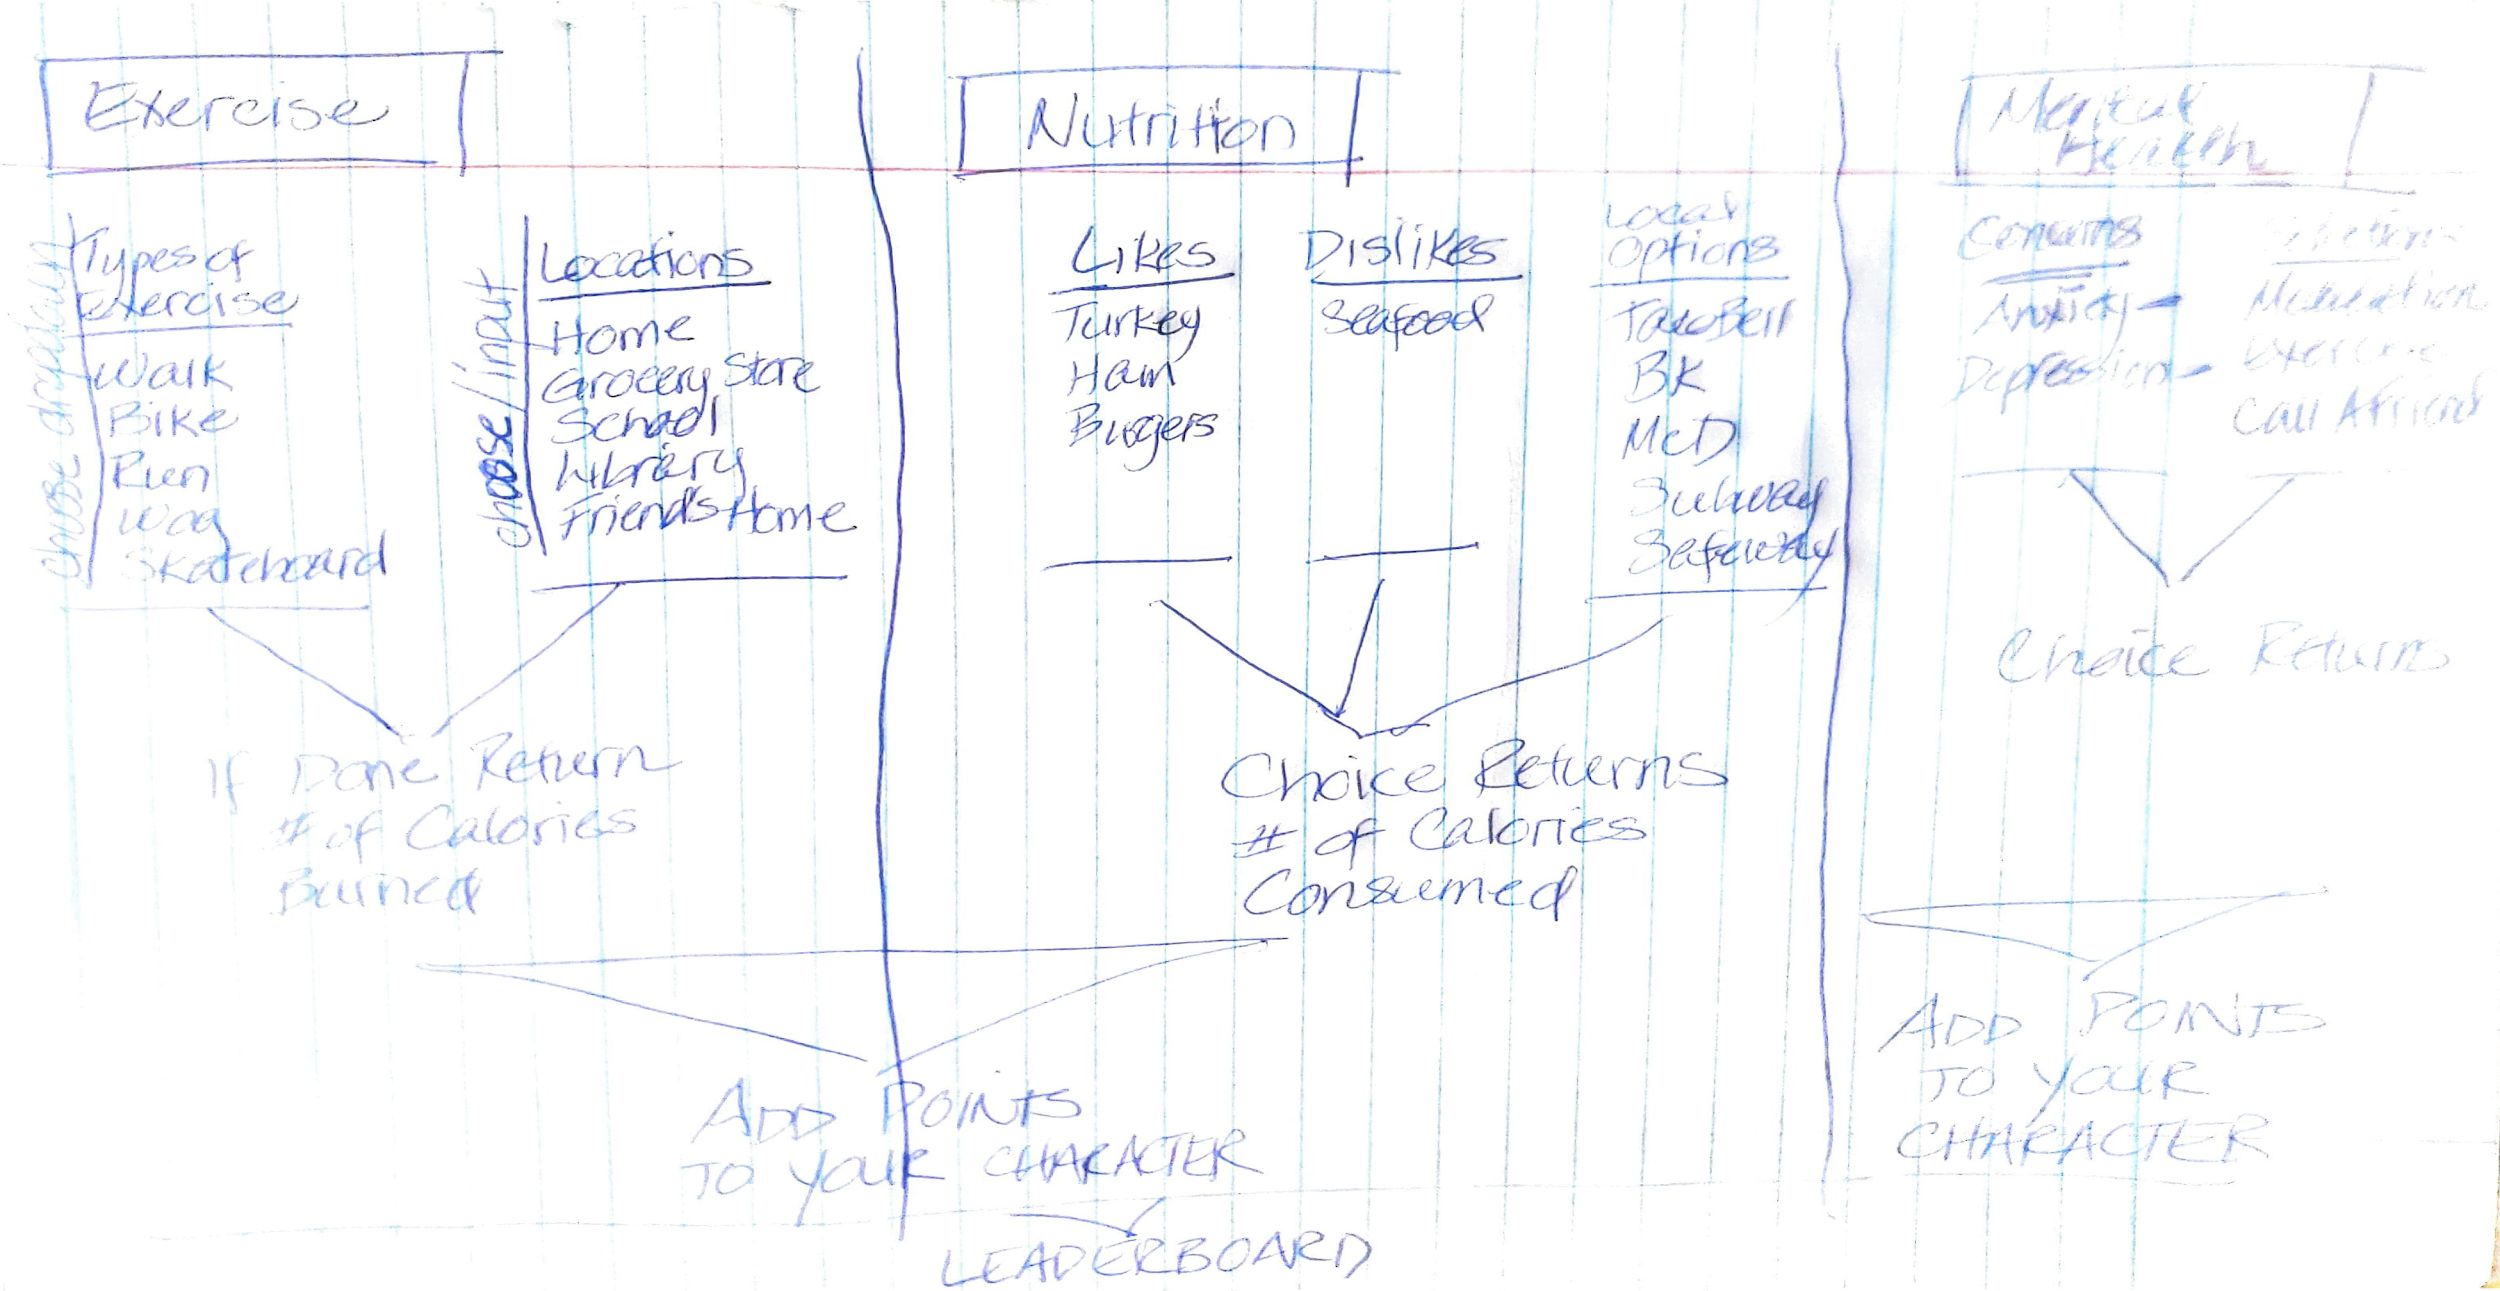 Exercise
Types of
Exercise
Walk
Bike
Run
Skateboard
choose
choose/input
Locations
Home
Grocery Store
School
Library
Friend's Home
If Done Return
# of Calories
Burned
Nutrition
Likes
Turkey
Ham
Burgers
Dislikes
Seafood
Local
Options
Taco Bell
BK
McD
Subway
Safeway
Choice Returns
# of Calories
Consumed
ADD POINTS
TO YOUR CHARACTER
LEADERBOARD
Mental
Health
Concerns
Anxiety
Depression
Exercise
Call A friend
Choice Return
ADD POINTS
TO YOUR
CHARACTER